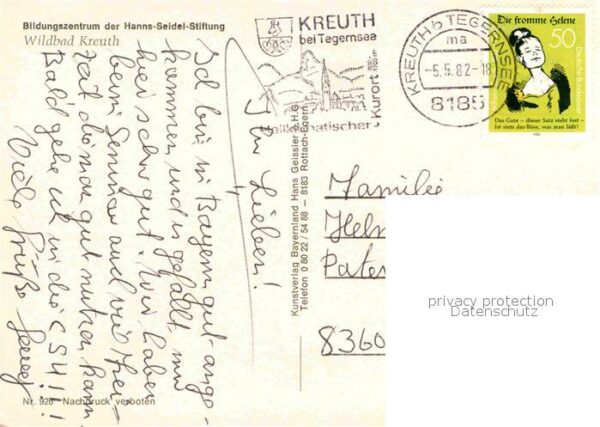 Bildungszentrum der Hanns-Seidel-Stiftung
Wildbad Kreuth
Ihr Lieben!
Ich bin in Bayern gut ange-
kommen und es gefällt mir
hier sehr gut. Wir haben
beim Seminar auch viel Frei-
zeit, die man gut nutzen kann.
Bald gehe ich in die CSU!!!
Viele Grüße
Nr. 928 Nachdruck verboten
Kunstverlag Bayernland Hans Geissler o.H.G.
Telefon 0 80 22 / 54 88 – 8183 Rottach-Egern
KREUTH
bei Tegernsee
heilklimatischer Kurort
KREUTH b TEGERNSEE
ma
-5.5.82-18
8185
Die fromme Helene
50
Deutsche Bundespost
Das Gute – dieser Satz steht fest –
Ist stets das Böse, was man läßt!
1982
Familie
Helm
Pater
8360
privacy protection
Datenschutz